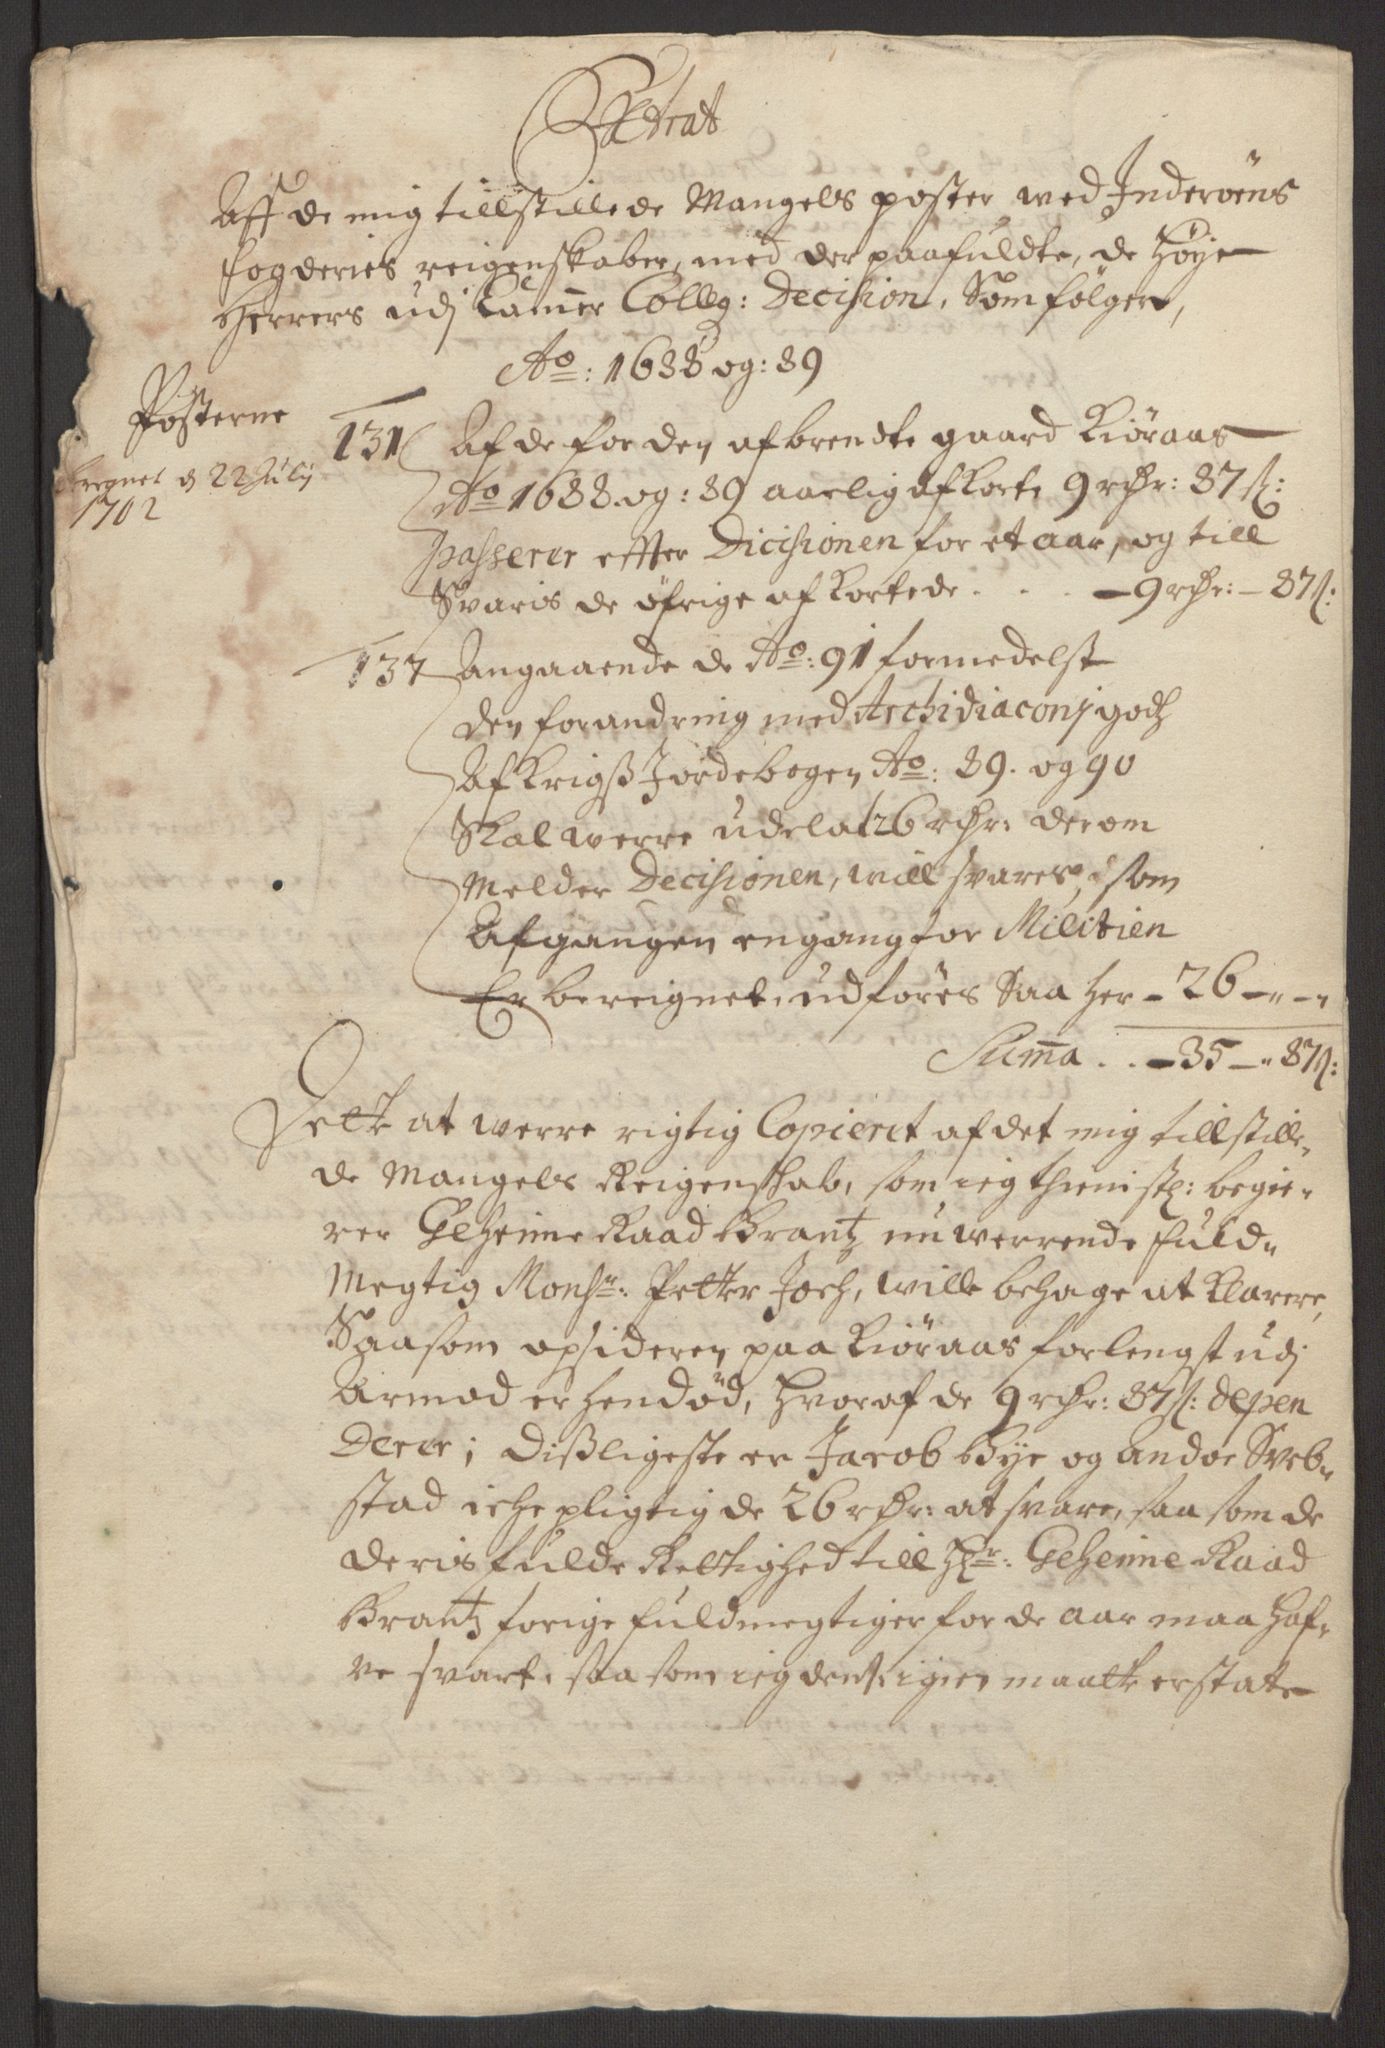 Extrat
Aff de mig tillstillede Mangels poster med Inderøens
fogderies reigenskaber, med der paafuldte, de Høye
Herrers udj Camer Colleg: Decision, Som følger,
Ao: 1688 og: 89
Posterne
d 22 Julij
1702
131 Af de for den afbrendte gaard Kiøraas
Ao 1688. og: 89 aarlig afkorte 9 rdr: 87 s:
passerer effter Dicisionen for et aar, og till
Svaris de øfrige afkortede . . . - 9 rdr: - 87 s:
137 Angaaende de Ao: 91 formedelst
den forandring med Archidiaconj godz
Af Krigss Jordebogen Ao: 89. og 90
Skal werre udela 26 rdr: derom
melder Decisionen, will svares, som
Afgangen engang for Militien
Er bereignet, udføres Saa her - 26 - " - "
Suma . . - 35 - " 87 s:
Dette at werre rigtig Copieret af det mig tillstille,
de Mangels Reigenskab, som ieg thienistl: begie,
rer Geheime Raad Brantz nuwerrende fuld,,
Megtig Monsr: Petter Joch, wille behage at Klarere,
Saasom opsideren paa Kiøraas forlengst udj
Armod er hendød, hvoraf de 9 rdr: 87 s: depen
derer; dissligeste er Jacob Bye og andre Sveb,,
stad iche pligtig de 26 rdr: at svare, saa som de
deris fulde Rettighed till Hr: Geheime Raad
Brantz forige fuldmegtiger for de aar maa haf,
ve svart, saa som ieg dend igien maatte erstate